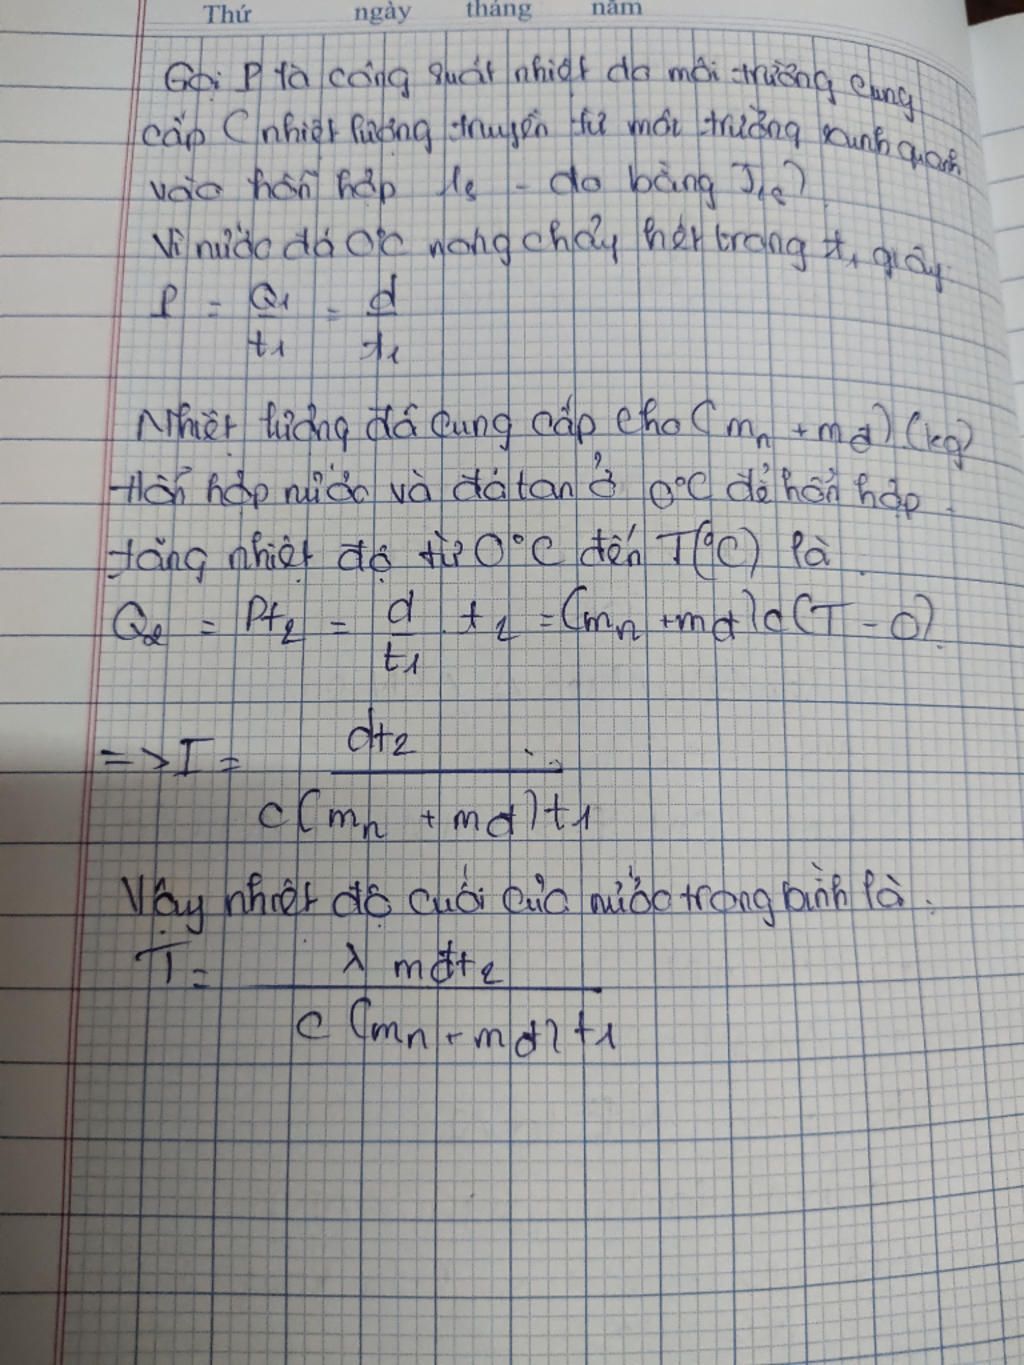 Thứ ngày tháng năm
Gọi P là công suất nhiệt do môi trường cung
cấp (nhiệt lượng truyền từ môi trường xunh quanh
vào hỗn hợp 1s - đo bằng J/s)
Vì nước đá 0°C nóng chảy hết trong t1 giây
P = Q1/t1 = d/t1
Nhiệt lượng đã cung cấp cho (mn + mđ) (kg)
Hỗn hợp nước và đá tan ở 0°C để hỗn hợp
tăng nhiệt độ từ 0°C đến T(°C) là
Q2 = Pt2 = d/t1 . t2 = (mn + mđ)c(T - 0)
=> T = dt2
c(mn + mđ)t1
Vậy nhiệt độ cuối của nước trong bình là.
T = λ mđt2
c (mn + mđ) t1